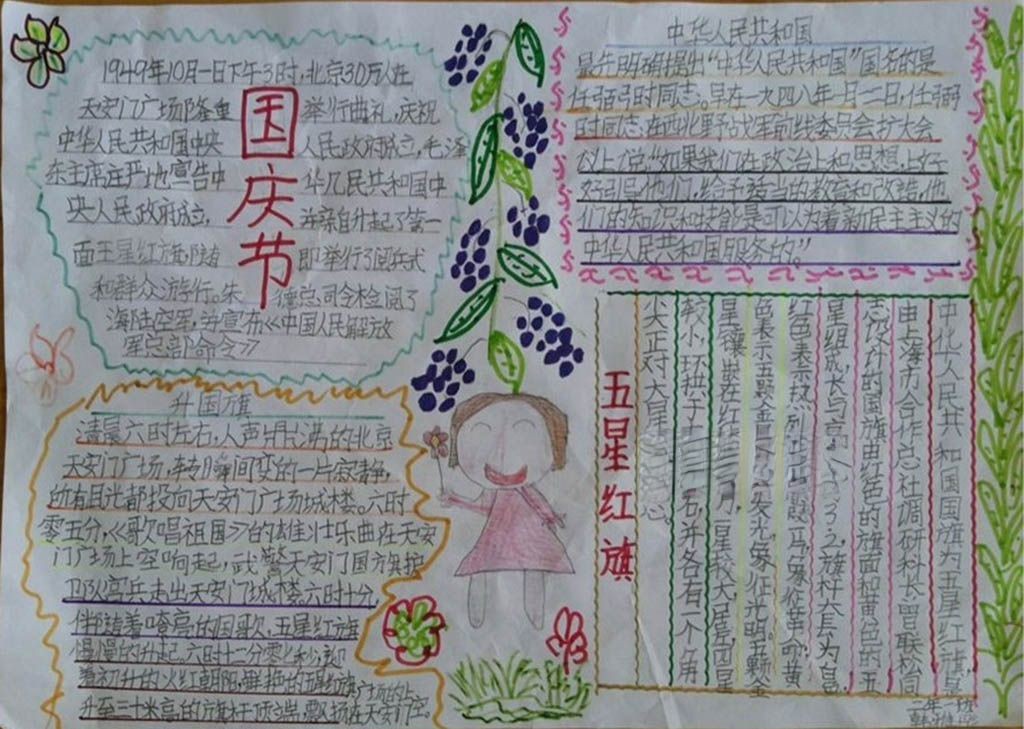 国庆节
1949年10月一日下午3时,北京30万人在
天安门广场隆重 举行典礼,庆祝
中华人民共和国中央 人民政府成立,毛泽
东主席庄严地宣告中 华人民共和国中
央人民政府成立, 并亲自升起了第一
面五星红旗。随 即举行了阅兵式
和群众游行。朱 德总司令检阅了
海陆空军,并宣布《中国人民解放
军总部命令》
中华人民共和国
最先明确提出"中华人民共和国"国务的是
任弼时同志。早在一九四八年一月十二日,任弼
时同志在西北野战军前线委员会扩大会
议上说"如果我们在政治上和思想上好
好引导他们,给予适当的教育和改造,他
们的知识和技能是可以为着新民主主义的
中华人民共和国服务的。"
升国旗
清晨六时左右,人声鼎沸的北京
天安门广场,转瞬间变的一片寂静,
所有目光都投向天安门广场城楼。六时
零五分,《歌唱祖国》的雄壮乐曲在天安
门广场上空响起,武警天安门国旗护
卫队官兵走出天安门城楼。六时十分,
伴随着嘹亮的国歌,五星红旗
慢慢的升起。六时十二分零 秒,
着初升的火红朝阳,
升至三十米高的旗杆顶端,飘扬在天安门 。
五星红旗
中华人民共和国国旗为五星红旗,是
由上海市合作总社调研科长曾联松同
志设计的国旗由红色的旗面和黄色的五
星组成,长与 3:2,旗杆套为白
红色表示热烈 象征革命,黄
色表示五颗金星 发光,象征光明。五颗金
星镶嵌在红 一星较大居 ,四星
较小,环拱于 右,并各有一个角
尖正对大星 心。
二年一班
韩雅